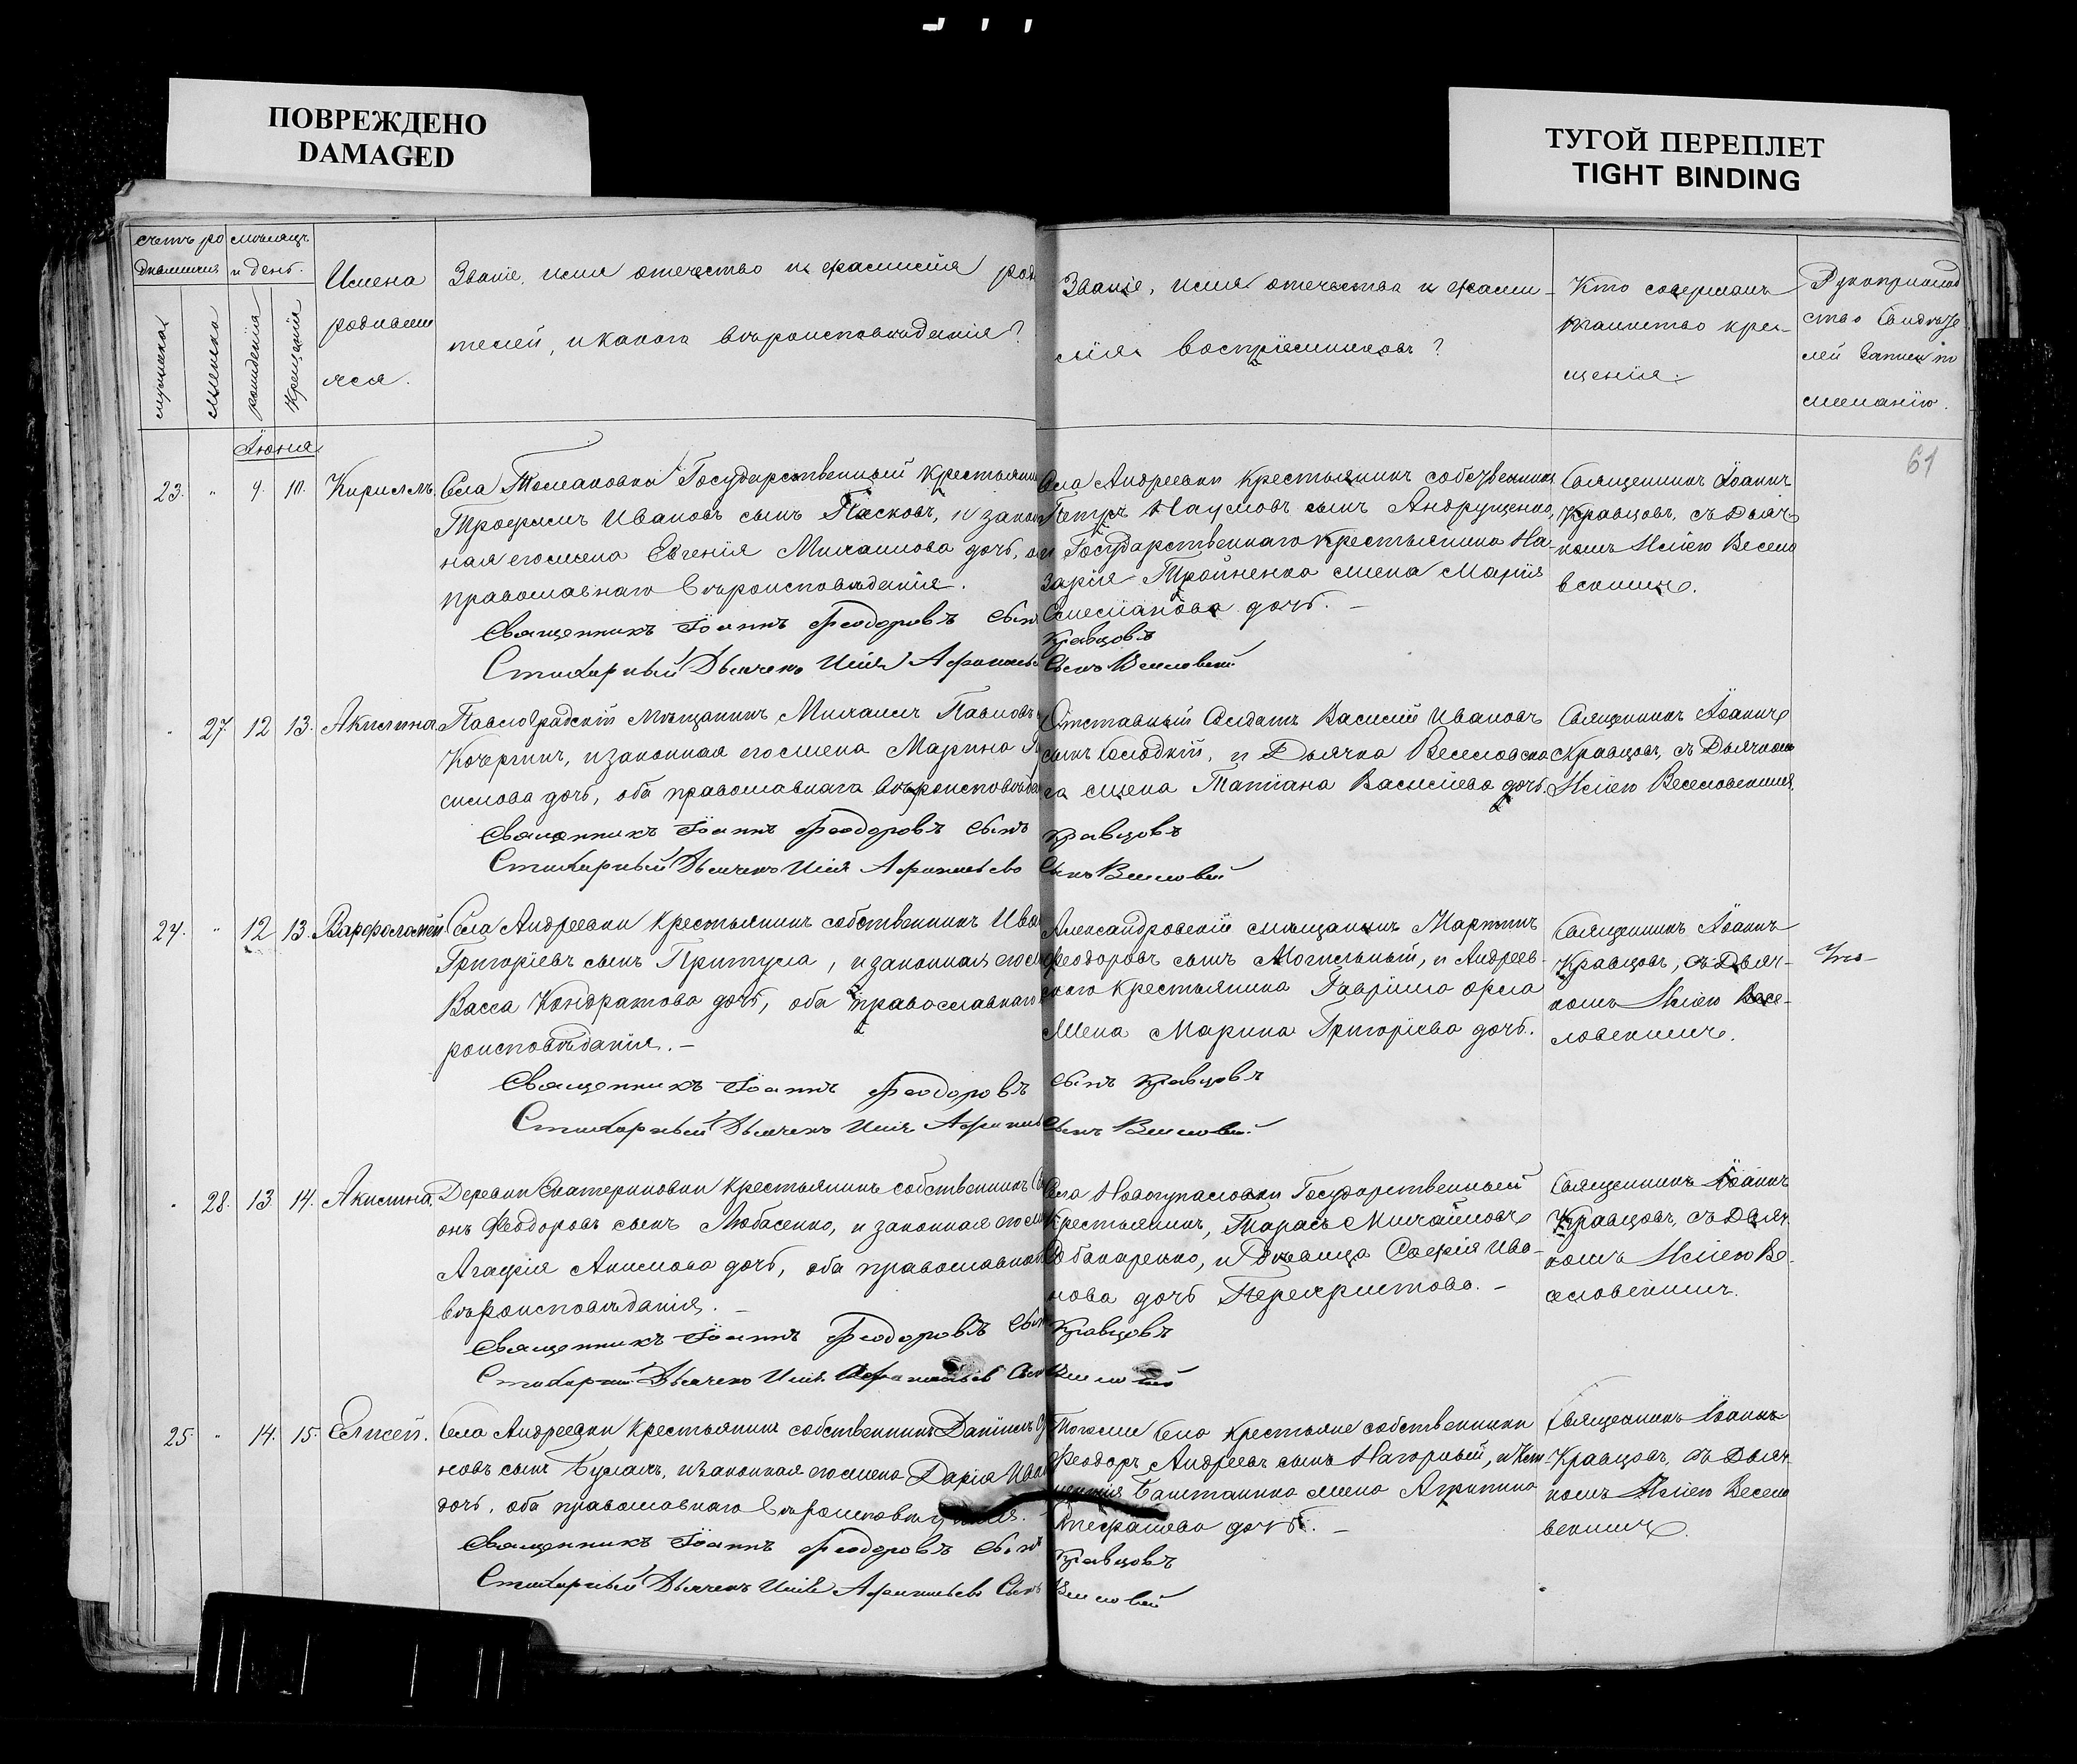 ПОВРЕЖДЕНО
DAMAGED
ТУГОЙ ПЕРЕПЛЕТ
TIGHT BINDING
счетъ ро
дившихся
мѣсяцъ
и день.
мужеска
женска
рожденія
Крещенія
Имена
родивши
яся.
Званіе, имя отечество и фамилія род
телей, и какого вѣроисповѣданія?
Званіе, имя отечество и фами-
лія воспріемниковъ?
Кто совершалъ
таинство кре-
щенія.
Рукоприклад
ство Свидѣте
лей записи по
желанію.
61
Іюня
23. " 9. 10. Кириллъ.
Села Томаковки Государственный крестьянин
Трофимъ Ивановъ сынъ Пасковъ, и закон
ная его жена Евгенія Михаилова дочь, о
православнаго вѣроисповѣданія.
Священникъ Іоаннъ Феодоровъ сынъ
Стихарный Дьячекъ Илія Афанасьев
Села Андреевки крестьянинъ собственникъ
Петръ Наумовъ сынъ Андрущенко,
и Государственнаго крестьянина На-
зарія Тройненка жена Марія
дочь. –
Кравцовъ
сынъ Веселовскій
Священникъ Іоаннъ
Кравцовъ, съ Дьяч-
комъ Иліею Весело
вскимъ.
" 27. 12 13. Акилина.
Павлоградскій мѣщанинъ Михаилъ Павловъ
Кочергинъ, и законная его жена Марина
симова дочь, оба православнаго вѣроисповѣда
Священникъ Іоаннъ Феодоровъ сынъ
Стихарный Дьячекъ Илія Афанасьевъ
Отставный Солдатъ Василій Ивановъ
сынъ Солодкій, и Дьячка Веселовска
го жена Татіана Василіева дочь.
Кравцовъ
сынъ Веселовскій
Священникъ Іоаннъ
Кравцовъ, съ Дьячкомъ
Иліею Веселовскимъ.
24. " 12 13. Варфоломей
Села Андреевки крестьянинъ собственникъ Ива
Григоріевъ сынъ Притула, и законная его ж
Васса Кондратова дочь, оба православнаго
роисповѣданія. –
Священникъ Іоаннъ Феодоровъ
Стихарный Дьячекъ Илія Афанась
Александровскій мѣщанинъ Мартинъ
Феодоровъ сынъ Могильный, и Андреев-
скаго крестьянина Гавріила Орла
жена Марина Григоріева дочь.
сынъ Кравцовъ
сынъ Веселовскій
Священникъ Іоаннъ
Кравцовъ, съ Дьяч-
комъ Иліею Весе-
ловскимъ.
" 28. 13 14. Акилина.
Деревни Екатериновки крестьянинъ собственникъ
онъ Феодоровъ сынъ Любасенко, и законная его ж
Агафія Акимова дочь, оба православнаго
вѣроисповѣданія. –
Священникъ Іоаннъ Феодоровъ сын
Стихарный Дьячекъ Илія Афанасьевъ сын
Села Новогупаловки Государственный
крестьянинъ, Тарасъ Михаиловъ
и Дѣвица Софія Ива-
нова дочь Перехристова. –
Кравцовъ
Веселовскій
Священникъ Іоаннъ
Кравцовъ, съ Дьяч-
комъ Иліею Ве-
селовскимъ.
25. " 14. 15. Елисей.
Села Андреевки крестьянинъ собственникъ Даніилъ
новъ сынъ Буланъ, и законная его жена Дарія Ива
дочь, оба православнаго вѣроисповѣданія.
Священникъ Іоаннъ Феодоровъ сынъ
Стихарный Дьячекъ Илія Афанасьевъ сынъ
Тогоже села крестьяне собственники
Феодоръ Андреевъ сынъ Нагорный, и
Баштанника жена Агрипина
дочь. –
Кравцовъ
Веселовскій
Священникъ Іоаннъ
Кравцовъ, съ Дьяч-
комъ Иліею Весело
вскимъ.